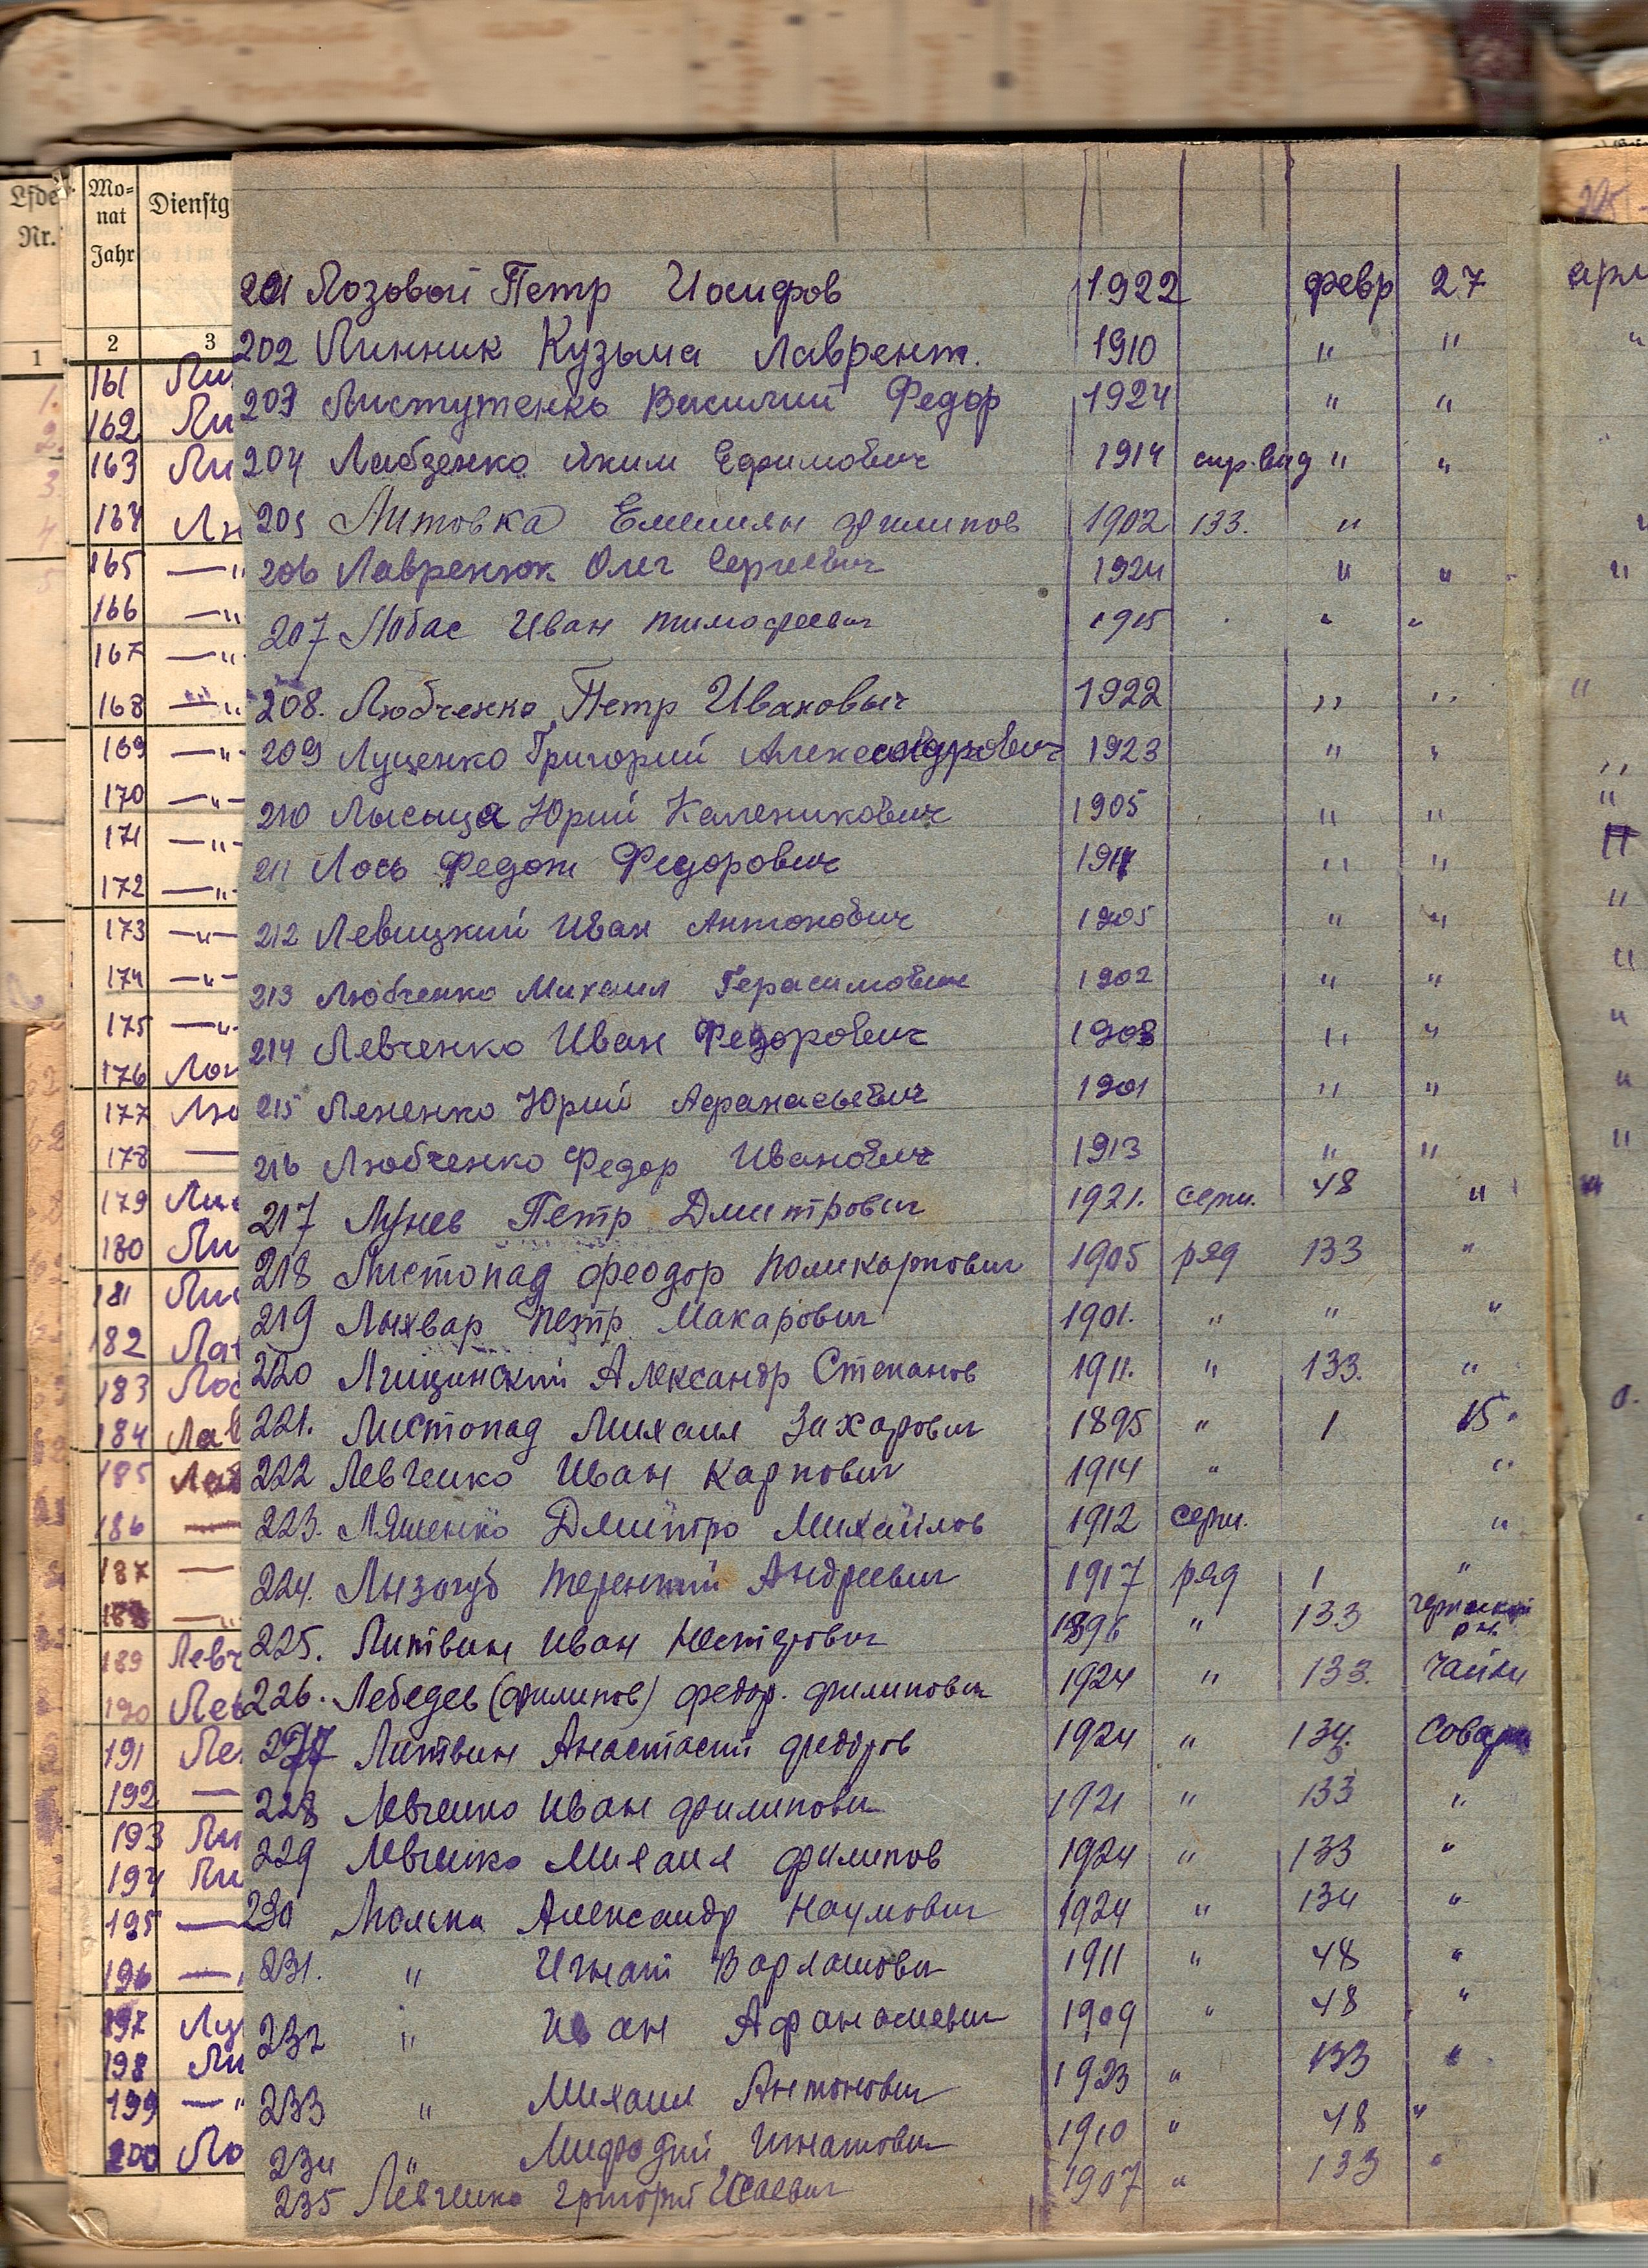 Lfde Nr.
Mo-
nat
Jahr
Dienstg
1 2 3
161 Ли
162 Ли
163 Ли
164
165 —"
166 —"
167 —"
168 —"
169 —"-
170 —"-
171 —"-
172 —"-
173 —"-
174 —"-
175 —"-
176 Лог
177 Лю
178 —
179 Лис
180 Ли
181 Лис
182
183 Лос
184 Лав
185
186 —
187 —
188 —"
189 Левч
190 Лев
191
192 —
193 Ли
194 Ли
195 —
196 —"
197 Лу
198 Ли
199 —"
200 Ло
201 Лозовой Петр Иосифов 1922 февр 27 апр
202 Линник Кузьма Лаврент. 1910 " " "
203 Листутенко Василий Федор 1924 " "
204 Лабзенко Яким Ефимович 1914 " "
205 Литовка Емелиян Филипов 1902 133. "
206 Лавренюк Олег Сергеевич 1924 " " "
207 Лобас Иван Тимофеевич 1915 " "
208. Любченко Петр Ивановыч 1922 " " "
209 Луценко Григорий Александрович 1923 " " "
210 Лысыца Юрий Каленикович 1905 " " "
211 Лось Федот Федорович 1914 " " "
212 Левицкий Иван Антонович 1905 " " "
213 Любченко Михаил Герасимович 1902 " " "
214 Левченко Иван Федорович 1903 " " "
215 Лененко Юрий Афанасьевич 1901 " " "
216 Любченко Федор Иванович 1913 " " "
217 Лунев Петр Дмитрович 1921. серж. 48 " "
218 Листопад Феодор Поликарпович 1905 ряд 133 "
219 Лыхвар Петр Макарович 1901. " " "
220 Лищинский Александр Степанов 1911. " 133. "
221. Листопад Михаил Захарович 1895 " 1 15
222 Левченко Иван Карпович 1914 " "
223. Ляшенко Дмитро Михайлов 1912 серж. "
224. Лызогуб Терентий Андреевич 1917 ряд 1 "
225. Литвин Иван Нестерович 1896 " 133
226. Лебедев (Филипов) Федор. Филипович 1924 " 133. Чайки
227 Литвин Анастасий Федоров 1924 " 134.
228 Левченко Иван Филипович 1921 " 133 "
229 Левченко Михаил Филипов 1924 " 133 "
230 Люлька Александр Наумович 1924 " 134 "
231. " Игнат Варламович 1911 " 48 "
232 " Иван Афанасиевич 1909 " 48 "
233 " Михаил Антонович 1923 " 133 "
234 " Мифодий Игнатович 1910 " 48 "
235 Левченко Григорий Исаевич 1907 " 133 "